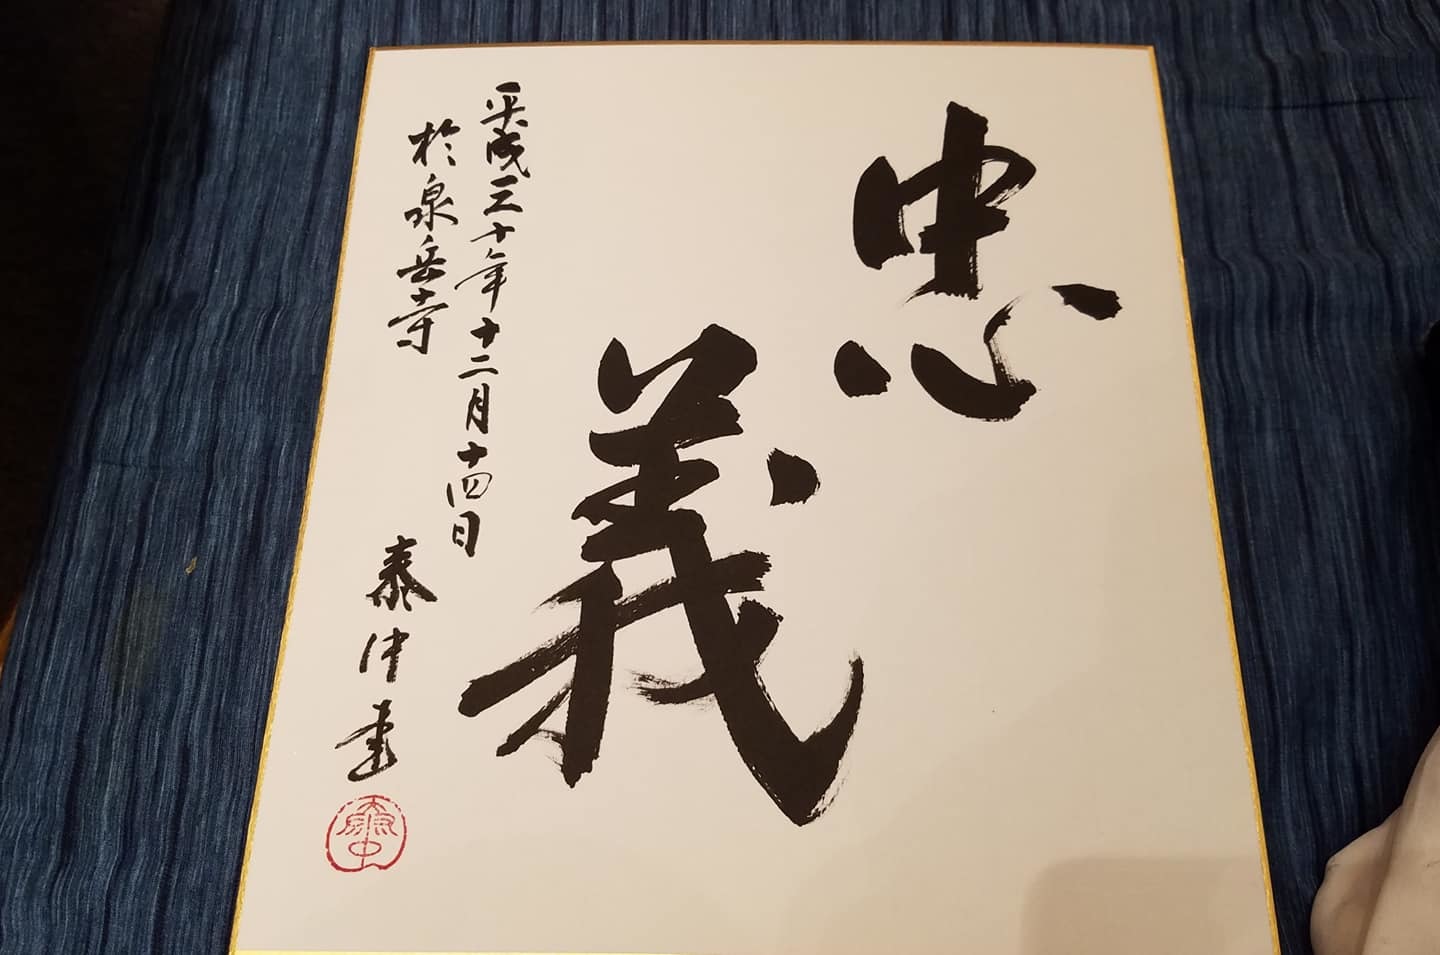 忠義
平成三十年十二月十四日
於泉岳寺
泰仲書